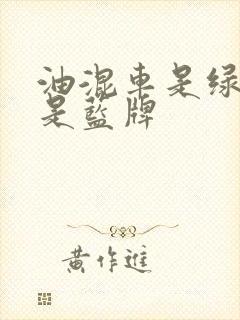 油混車是绿
是藍牌
黄作進